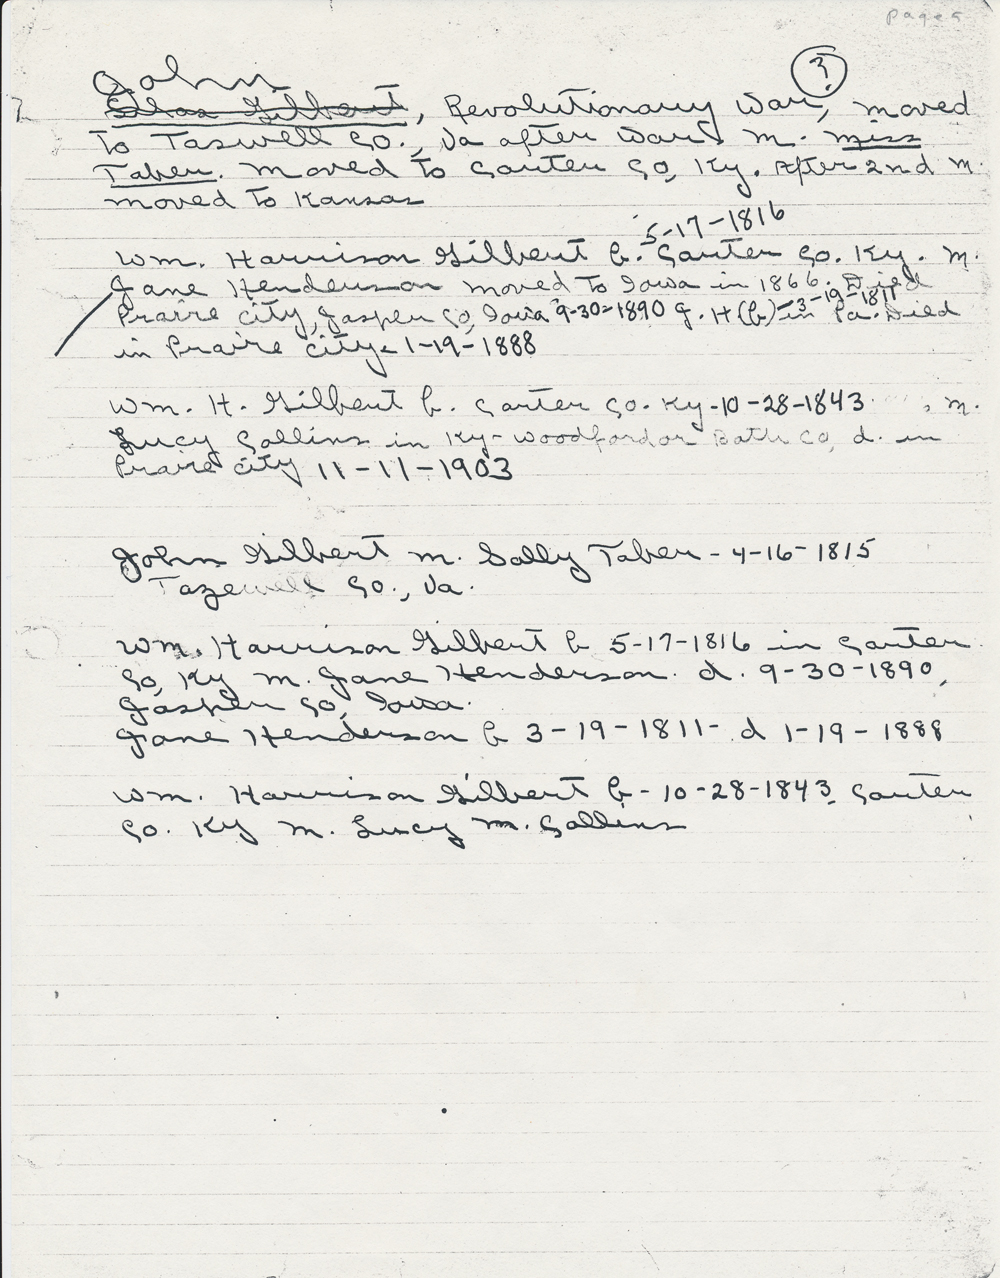 page 5
John ?
Silas Gilbert, Revolutionary War, moved
to Taswell Co., Va after War. m. Miss
Taber. Moved to Carter Co, Ky. After 2nd m.
moved to Kansas
5-17-1816
Wm. Harrison Gilbert b. Carter Co. Ky. m.
Jane Henderson moved to Iowa in 1866. Died
Prairie City, Jasper Co, Iowa 9-30-1890 J. H (b) - 3-19-1811 in Pa. Died
in Praire City - 1-19-1888
Wm. H. Gilbert b. Carter Co. Ky - 10-28-1843, m.
Lucy Collins in Ky - Woodford or Bath Co, d. in
Praire City 11-11-1903
John Gilbert m. Sally Taber - 4-16-1815
Tazewell Co., Va.
Wm. Harrison Gilbert b 5-17-1816 in Carter
Co, Ky m. Jane Henderson. d. 9-30-1890,
Jasper Co, Iowa.
Jane Henderson b 3-19-1811- d 1-19-1888
Wm. Harrison Gilbert b - 10-28-1843, Carter
Co. Ky m. Lucy M. Collins